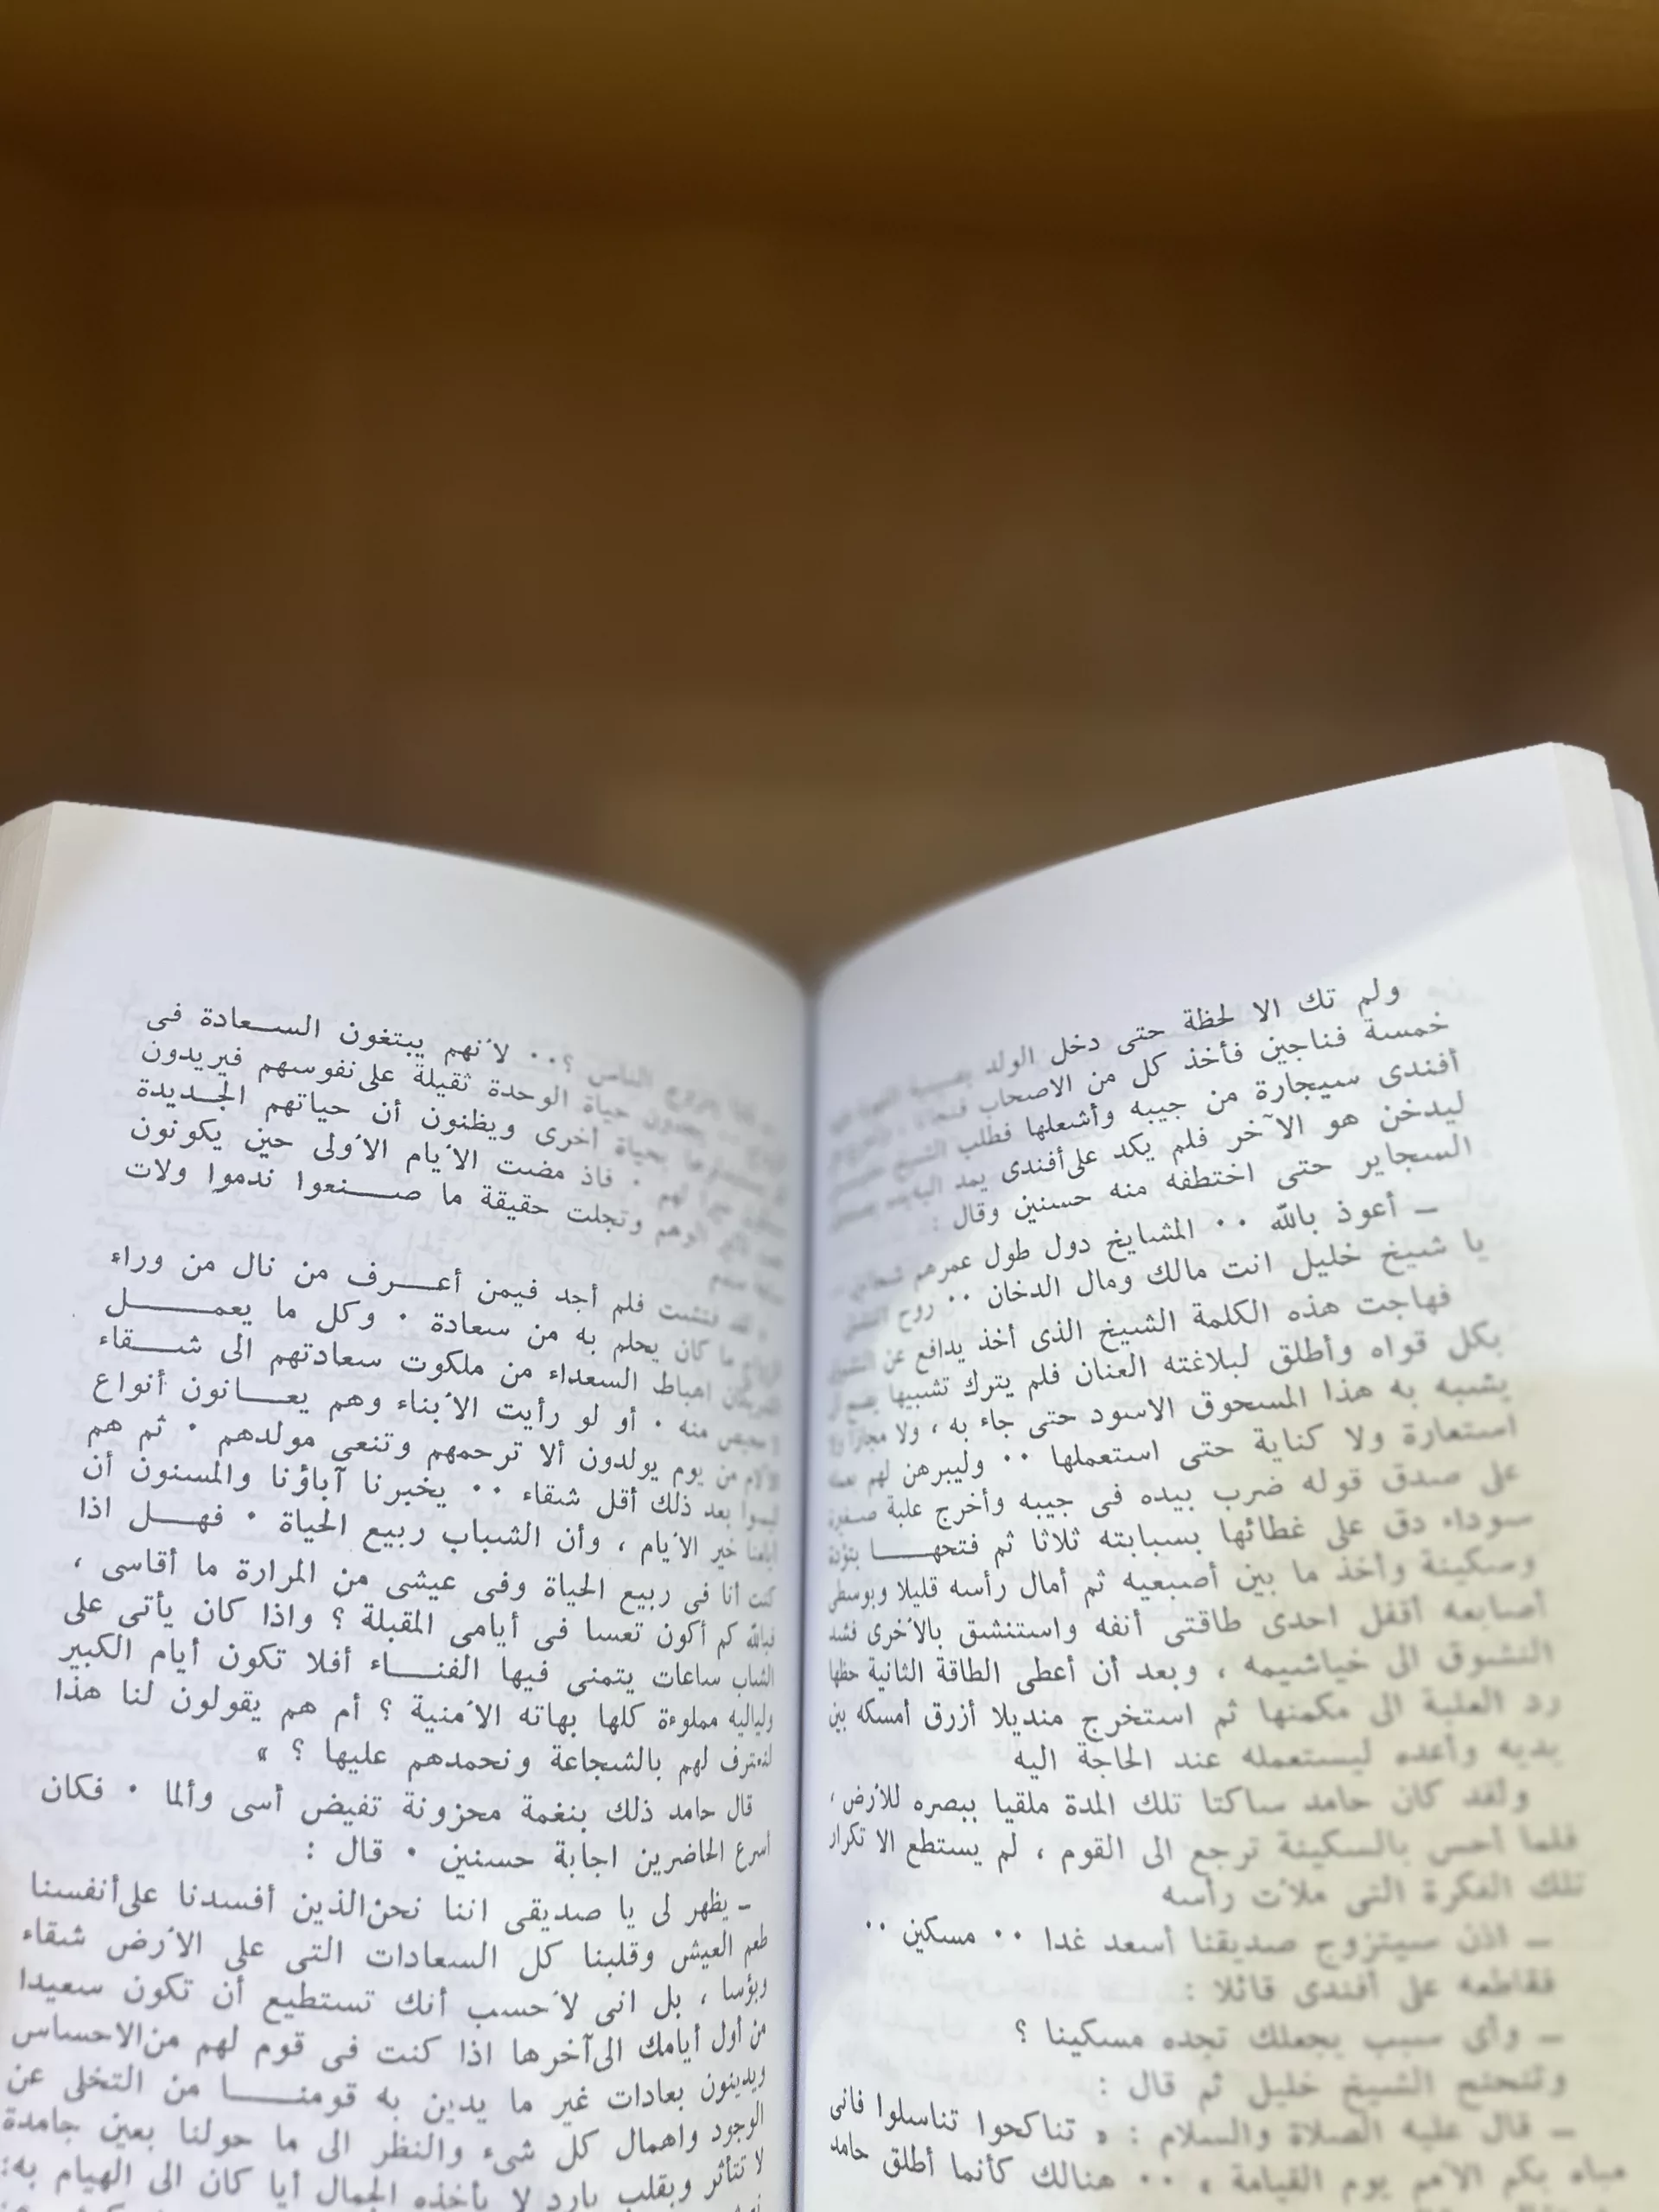 ولم تك الا لحظة حتى دخل الولد
خمسة فناجين فأخذ كل من الاصحاب
أفندى سيجارة من جيبه وأشعلها فطلب الشيخ
ليدخن هو الآخر فلم يكد على أفندى يمد اليه يده
السجاير حتى اختطفه منه حسنين وقال :
– أعوذ بالله ٠٠ المشايخ دول طول عمرهم
يا شيخ خليل انت مالك ومال الدخان ٠٠ روح
فهاجت هذه الكلمة الشيخ الذى أخذ يدافع عن النشوق
بكل قواه وأطلق لبلاغته العنان فلم يترك تشبيها
يشبه به هذا المسحوق الاسود حتى جاء به ، ولا مجازا ولا
استعارة ولا كناية حتى استعملها ٠٠ وليبرهن لهم
على صدق قوله ضرب بيده فى جيبه وأخرج علبة صغيرة
سوداء دق على غطائها بسبابته ثلاثا ثم فتحها بتؤدة
وسكينة وأخذ ما بين أصبعيه ثم أمال رأسه قليلا وبوسطى
أصابعه أقفل احدى طاقتى أنفه واستنشق بالأخرى فشد
النشوق الى خياشيمه ، وبعد أن أعطى الطاقة الثانية حظها
رد العلبة الى مكمنها ثم استخرج منديلا أزرق أمسكه بين
يديه وأعده ليستعمله عند الحاجة اليه
ولقد كان حامد ساكتا تلك المدة ملقيا ببصره للأرض ،
فلما أحس بالسكينة ترجع الى القوم ، لم يستطع الا تكرار
تلك الفكرة التى ملأت رأسه
– اذن سيتزوج صديقنا أسعد غدا ٠٠ مسكين ٠٠
فقاطعه على أفندى قائلا :
– وأى سبب يجعلك تجده مسكينا ؟
وتنحنح الشيخ خليل ثم قال :
– قال عليه الصلاة والسلام : « تناكحوا تناسلوا فانى
مباه بكم الأمم يوم القيامة » ٠٠ هنالك كأنما أطلق حامد
الناس ؟ ٠٠ لأنهم يبتغون السعادة فى
حياة الوحدة ثقيلة على نفوسهم فيريدون
بحياة أخرى ويظنون أن حياتهم الجديدة
لهم ٠ فاذ مضت الأيام الأولى حين يكونون
الوهم وتجلت حقيقة ما صنعوا ندموا ولات
فتشت فلم أجد فيمن أعرف من نال من وراء
ما كان يحلم به من سعادة ٠ وكل ما يعمل
اهباط السعداء من ملكوت سعادتهم الى شقاء
منه ٠ أو لو رأيت الأبناء وهم يعانون أنواع
الآلام من يوم يولدون ألا ترحمهم وتنعى مولدهم ٠ ثم هم
ليسوا بعد ذلك أقل شقاء ٠٠ يخبرنا آباؤنا والمسنون أن
أيامنا خير الأيام ، وأن الشباب ربيع الحياة ٠ فهل اذا
كنت أنا فى ربيع الحياة وفى عيشى من المرارة ما أقاسى ،
فبالله كم أكون تعسا فى أيامى المقبلة ؟ واذا كان يأتى على
الشباب ساعات يتمنى فيها الفناء أفلا تكون أيام الكبير
ولياليه مملوءة كلها بهاته الأمنية ؟ أم هم يقولون لنا هذا
لنعترف لهم بالشجاعة ونحمدهم عليها ؟ »
قال حامد ذلك بنغمة محزونة تفيض أسى وألما ٠ فكان
أسرع الحاضرين اجابة حسنين ٠ قال :
– يظهر لى يا صديقى اننا نحن الذين أفسدنا على أنفسنا
طعم العيش وقلبنا كل السعادات التى على الأرض شقاء
وبؤسا ، بل انى لأحسب أنك تستطيع أن تكون سعيدا
من أول أيامك الى آخرها اذا كنت فى قوم لهم من الاحساس
ويدينون بعادات غير ما يدين به قومنا من التخلى عن
الوجود واهمال كل شىء والنظر الى ما حولنا بعين جامدة
لا تتأثر وبقلب بارد لا يأخذه الجمال أيا كان الى الهيام به :